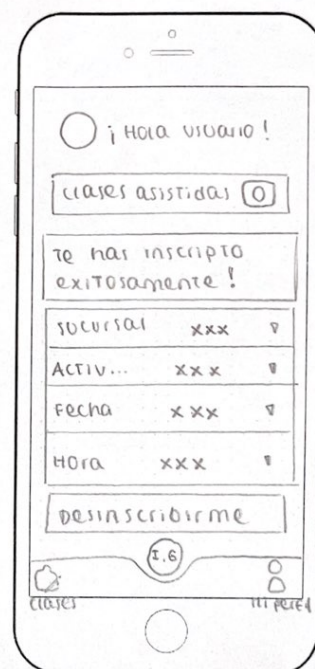 ¡ Hola usuario !
Clases asistidas 0
Te has inscripto
exitosamente !
Sucursal xxx
Activ... xxx
Fecha xxx
Hora xxx
Desinscribirme
I.G
Clases
Mi perfil